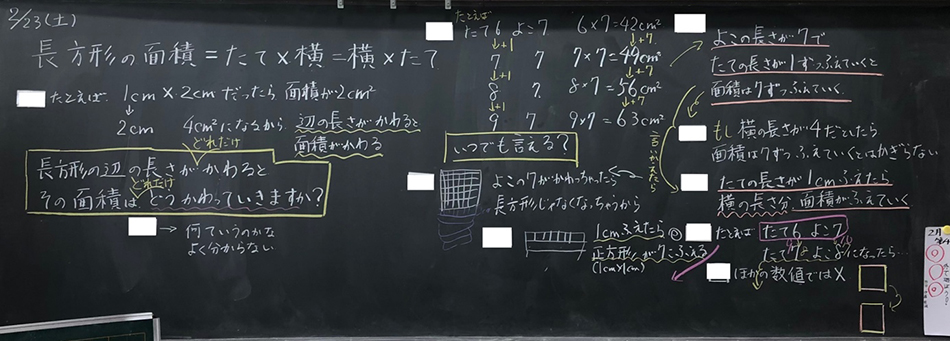 2/23(土)
長方形の面積=たて×横=横×たて
たとえば 1cm×2cmだったら 面積が2cm²
2cm 4cm²になるから 辺の長さがかわると
面積がかわる
どれだけ
長方形の辺の長さがかわると
どれだけ
その面積はどうかわっていきますか?
→何ていうのかな
よく分からない
たとえば
たて6 よこ7 6×7=42cm²
+1 +7
7 7 7×7=49cm²
+1 +7
8 7 8×7=56cm²
+1 +7
9 7 9×7=63cm²
いつでも言える?
言いかえたら
よこの7がかわっちゃったら
長方形じゃなくなっちゃうから
1cmふえたら
正方形が7こふえる
(1cm×1cm)
よこの長さが7で
たての長さが1ずつふえていくと
面積は7ずつふえていく。
もし横の長さが4だといたら
面積は7ずつふえていくとはかぎらない
たての長さが1cmふえたら
横の長さ分、面積がふえていく
たとえば たて6 よこ7
たて7 よこ8になったら…
ほかの数値では×
2月